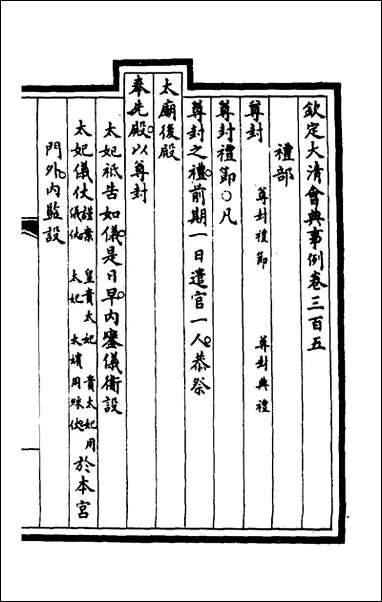 欽定大清會典事例卷三百五
禮部
尊封 尊封禮節 尊封典禮
尊封禮節〇凡
尊封之禮前期一日遣官一人恭祭
太廟後殿
奉先殿以尊封
太妃祗告如儀是日早內鑾儀衛設
太妃儀仗謹案皇貴太妃貴太妃用儀仗太妃太嬪用綵仗於本宮
門外內監設